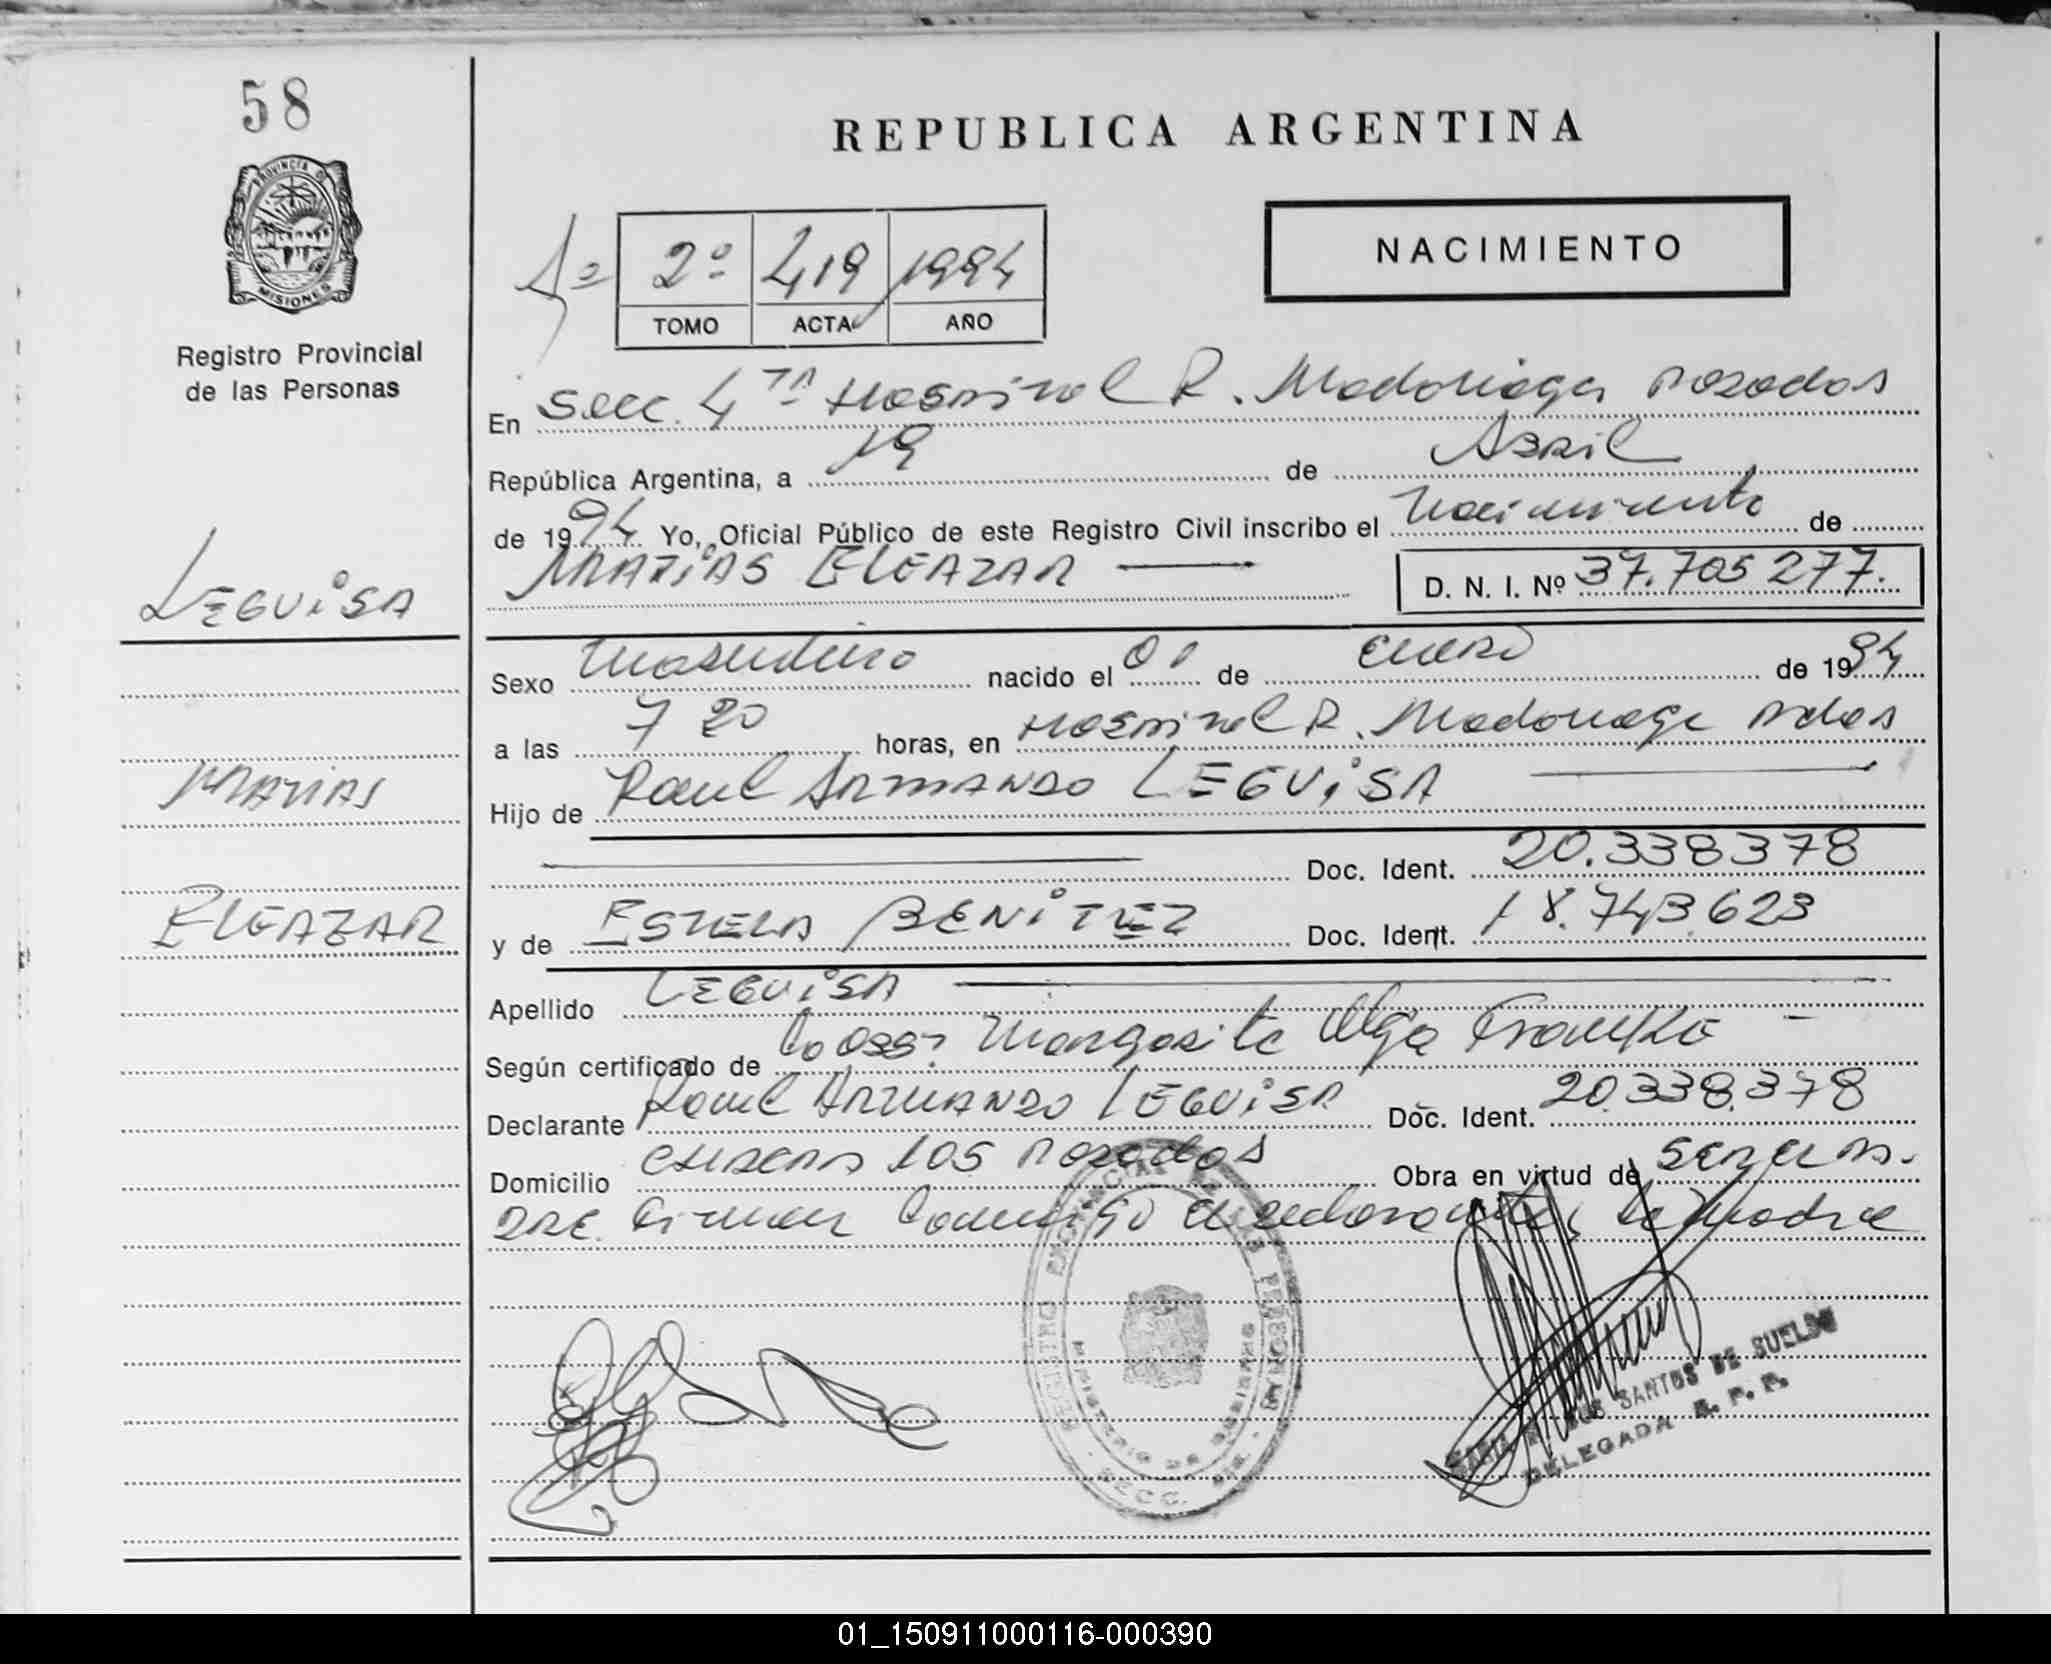 58
REPUBLICA ARGENTINA
NACIMIENTO
PROVINCIA DE
MISIONES
2º 419 1994
TOMO ACTA AÑO
Registro Provincial
de las Personas
En Secc. 4TA Hospital R. Madariaga Posadas
República Argentina, a 19 de Abril
de 1994 Yo, Oficial Público de este Registro Civil inscribo el Nacimiento de
MATIAS ELEAZAR D. N. I. Nº 37.705 277.
LEGUISA
Sexo Masculino nacido el 01 de enero de 1994
a las 7 20 horas, en Hospital R. Madariaga Pdas
MATIAS
Hijo de Raul ARMANDO LEGUISA
Doc. Ident. 20.338378
ELEAZAR
y de ESTELA BENITEZ Doc. Ident. 18.743.623
Apellido LEGUISA
Según certificado de Margarita Olga
Declarante Raul ARMANDO LEGUISA Doc. Ident. 20.338.378
Domicilio 105 Posadas Obra en virtud de
Firman Conmigo el declarante, la Madre
REGISTRO PROVINCIAL DE LAS PERSONAS
MINISTERIO DE GOBIERNO
SECC.
SANTOS DE SUELDO
DELEGADA R. P. P.
01_150911000116-000390